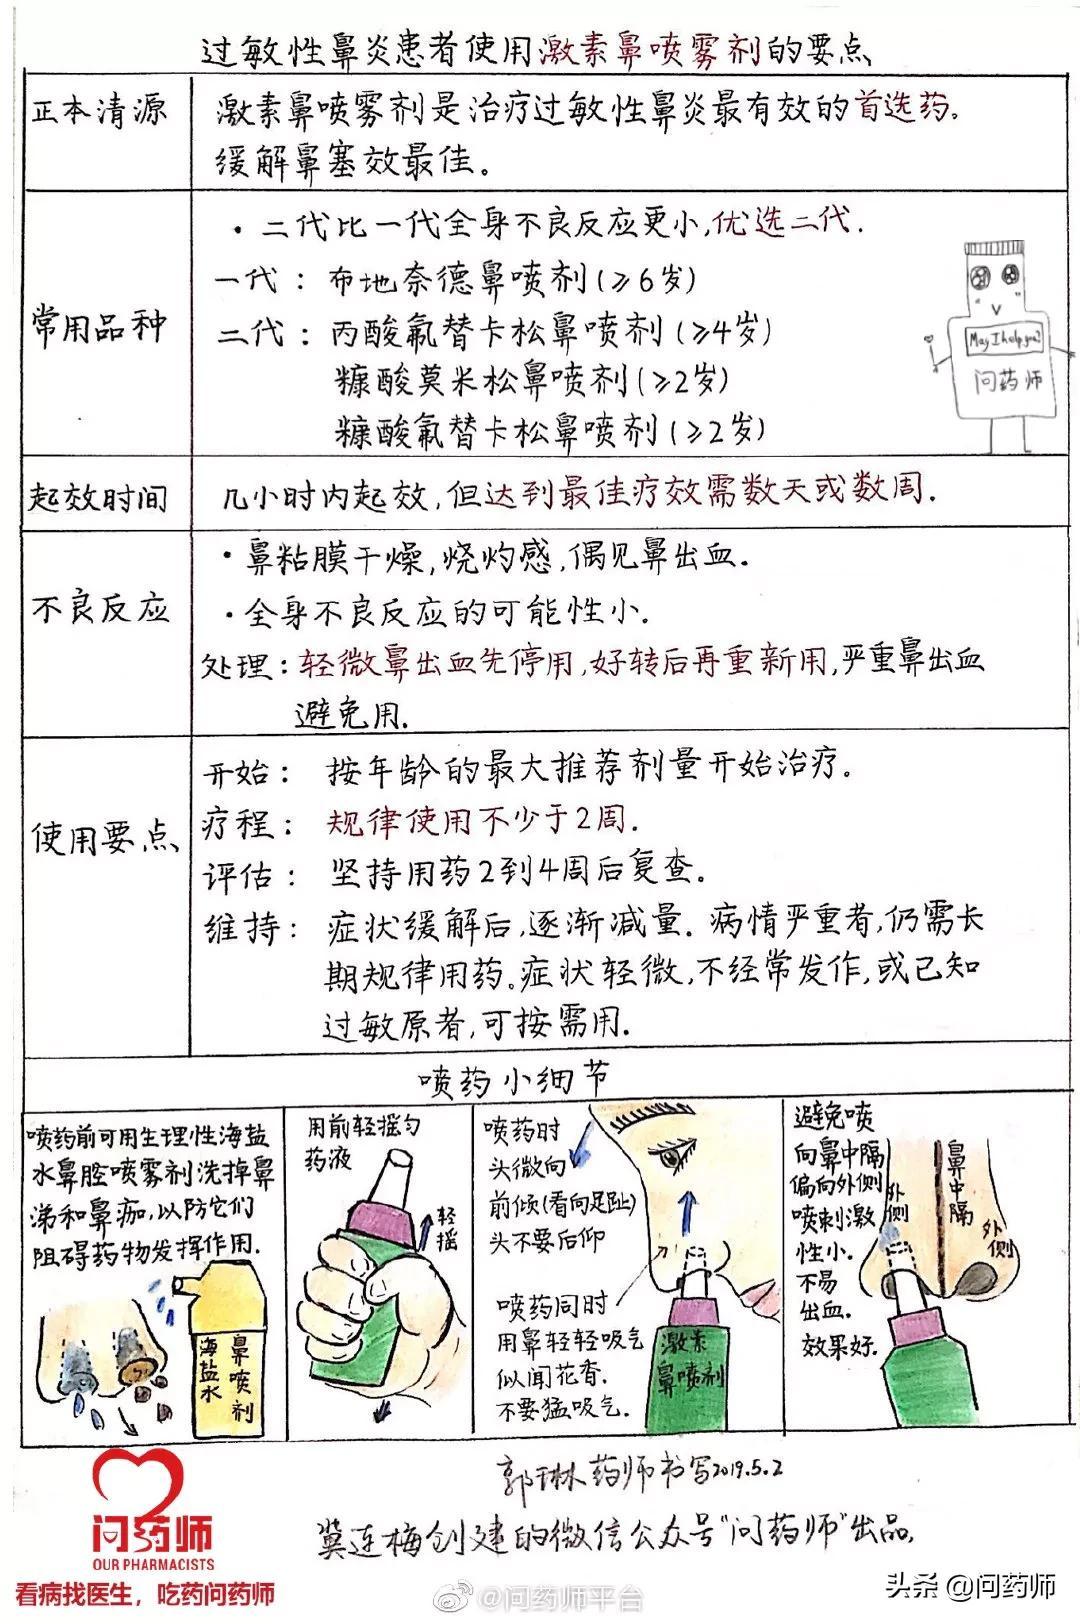 过敏性鼻炎患者使用激素鼻喷雾剂的要点
正本清源
激素鼻喷雾剂是治疗过敏性鼻炎最有效的首选药。
缓解鼻塞效最佳。
常用品种
·二代比一代全身不良反应更小,优选二代.
一代：布地奈德鼻喷剂(≥6岁)
二代：丙酸氟替卡松鼻喷剂(≥4岁)
糠酸莫米松鼻喷剂(≥2岁)
糠酸氟替卡松鼻喷剂(≥2岁)
May I help you?
问药师
起效时间
几小时内起效,但达到最佳疗效需数天或数周.
不良反应
·鼻粘膜干燥,烧灼感,偶见鼻出血.
·全身不良反应的可能性小.
处理：轻微鼻出血先停用,好转后再重新用,严重鼻出血
避免用.
使用要点
开始：按年龄的最大推荐剂量开始治疗。
疗程：规律使用不少于2周.
评估：坚持用药2到4周后复查。
维持：症状缓解后,逐渐减量.病情严重者,仍需长
期规律用药。症状轻微,不经常发作,或已知
过敏原者,可按需用.
喷药小细节
喷药前可用生理性海盐
水鼻腔喷雾剂洗掉鼻
涕和鼻痂,以防它们
阻碍药物发挥作用.
海盐水
鼻喷剂
用前轻摇匀
药液
轻摇
喷药时
头微向
前倾(看向足趾)
头不要后仰
喷药同时
用鼻轻轻吸气
似闻花香.
不要猛吸气.
激素
鼻喷剂
避免喷
向鼻中隔
偏向外侧
喷刺激
性小.
不易
出血.
效果好.
外侧
鼻中隔
外侧
郭琳药师书写2019.5.2
冀连梅创建的微信公众号"问药师"出品.
问药师
OUR PHARMACISTS
看病找医生，吃药问药师
@问药师平台
头条 @问药师